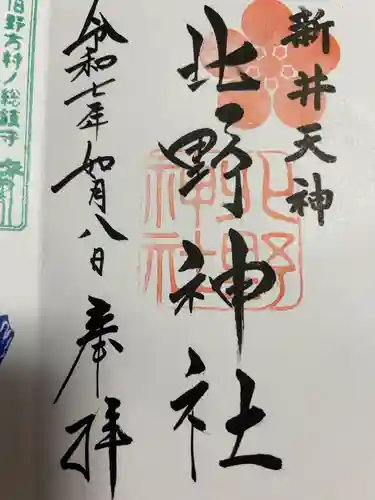 新井天神
北野神社
北野
神社
令和七年如月八日 奉拝
旧野方村ノ総鎮守